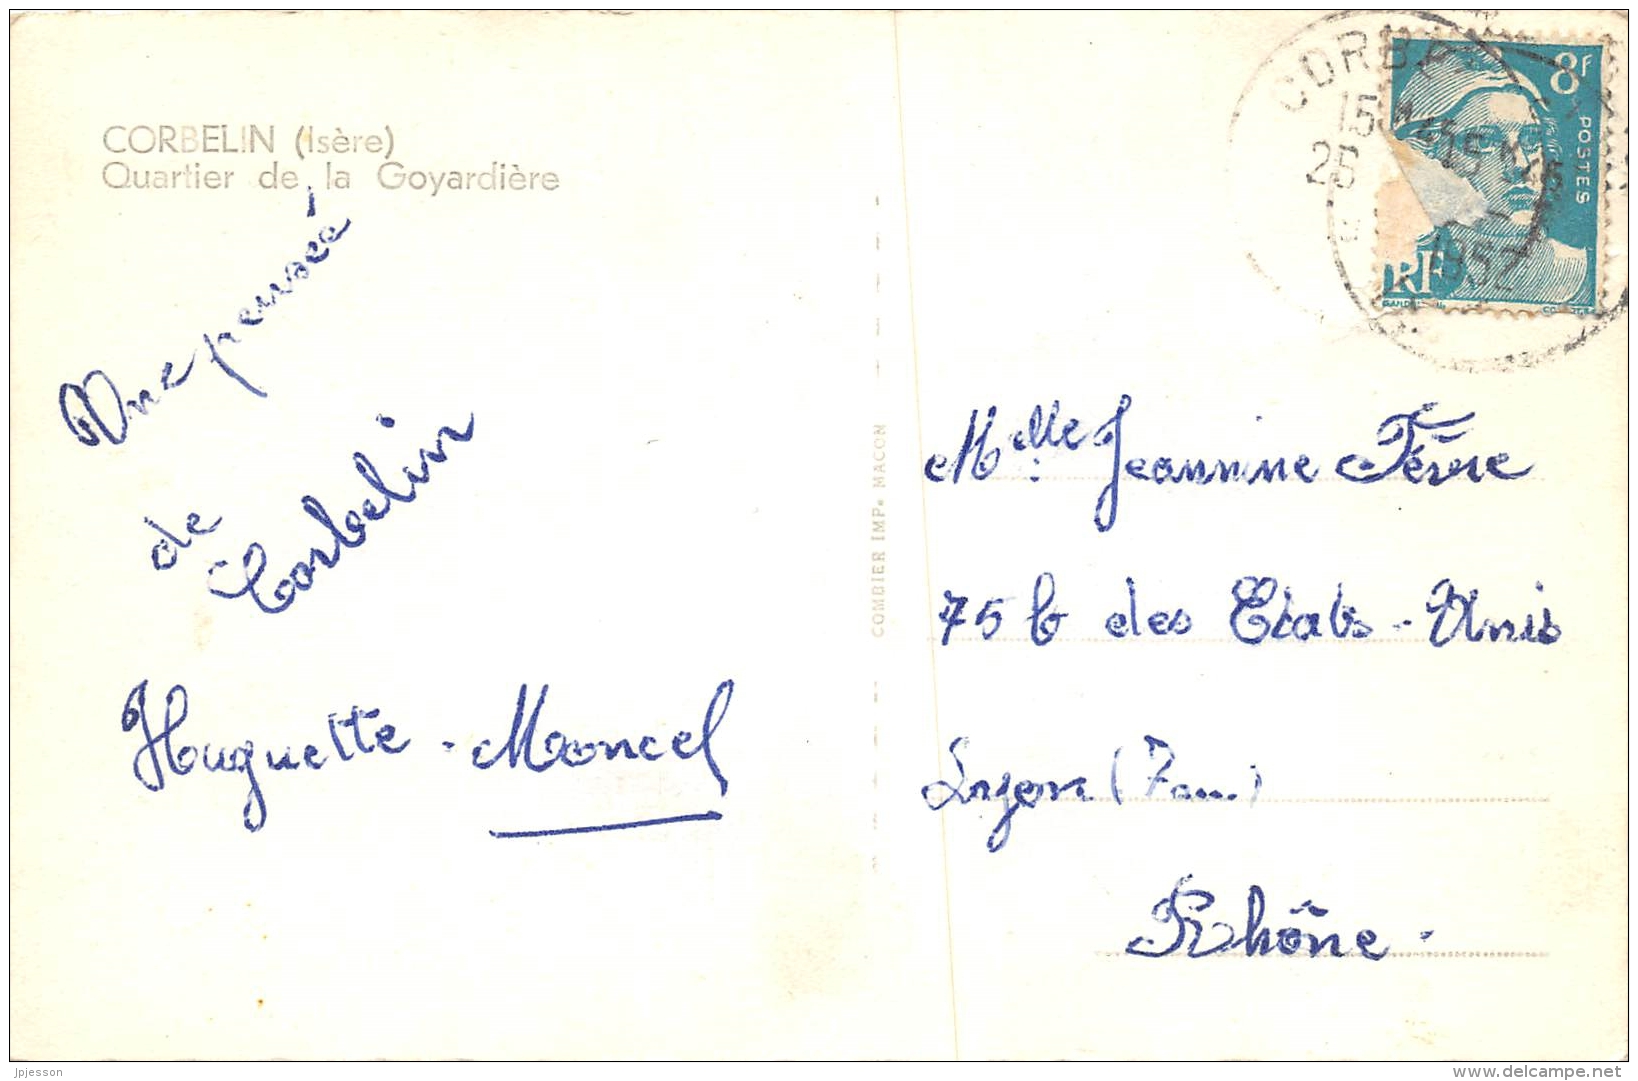 CORBELIN (Isère)
Quartier de la Goyardière
Une pensée
de
Corbelin
Huguette - Moncel
COMBIER IMP. MACON
8F
POSTES
RF
15
26
1952
Melle Jeannine Ferre
75 b des Etats-Unis
Lyon (7em)
Rhône.
jpjesson
www.delcampe.net